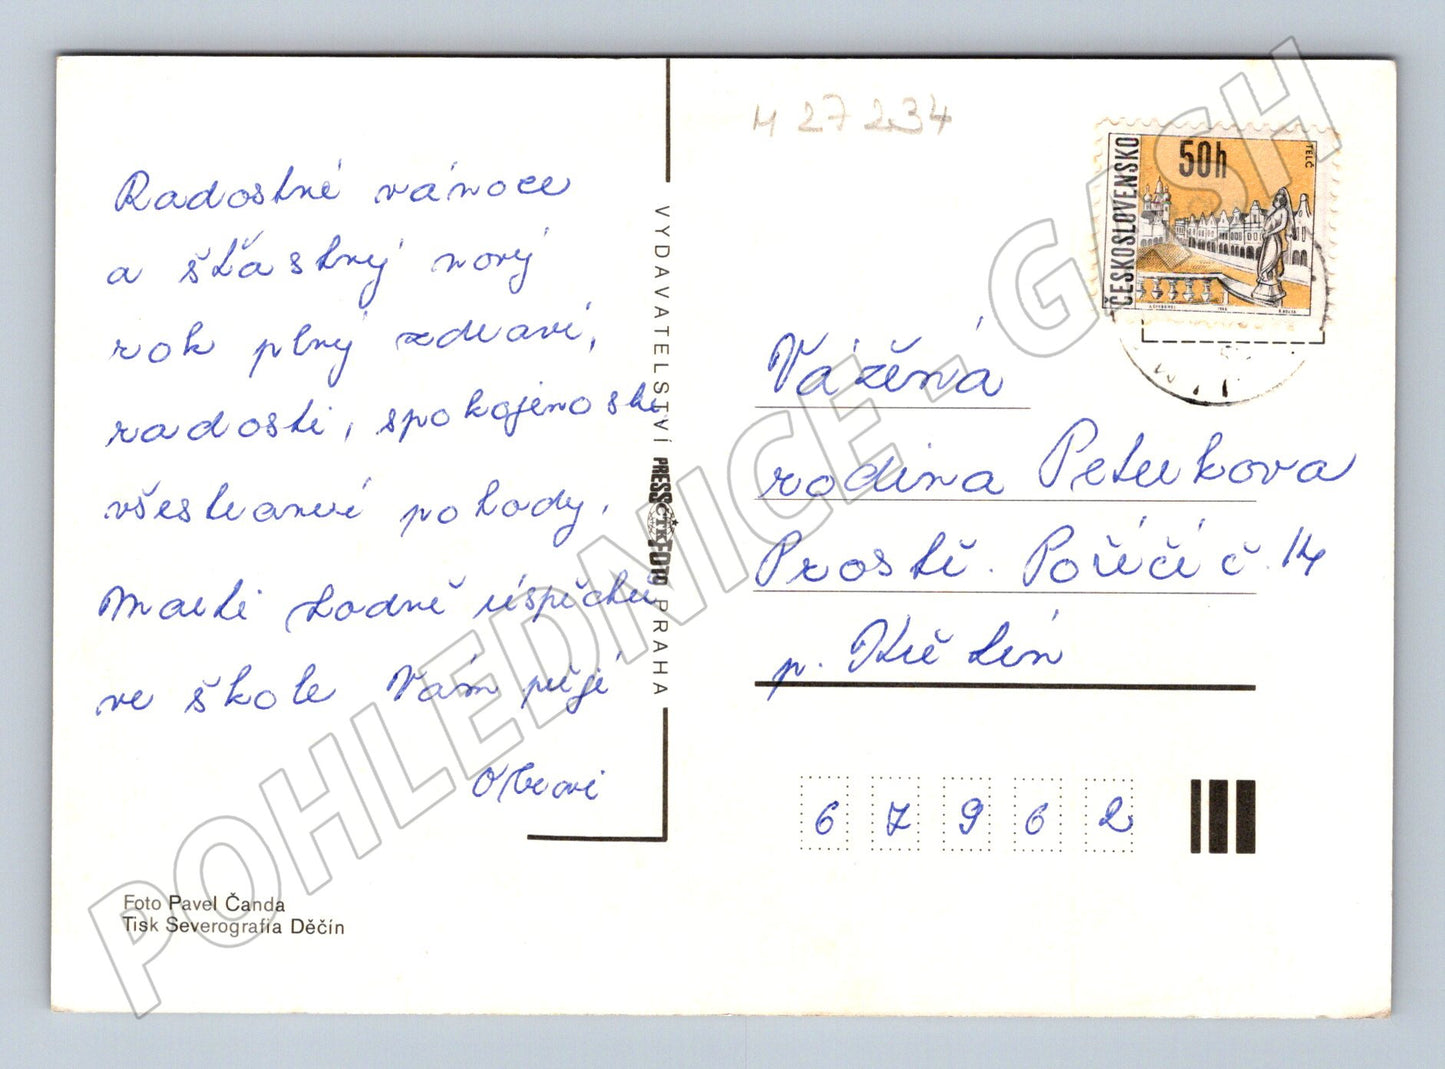 Radostné vánoce
a šťastný nový
rok plný zdraví,
radosti, spokojenosti
všestranné pohody.
Marti hodně úspěchů
ve škole Vám přejí
Foto Pavel Čanda
Tisk Severografia Děčín
VYDAVATELSTVÍ PRESSFOTO PRAHA
ČTK
M 27 234
ČESKOSLOVENSKO
50h
TELČ
Vážená
rodina Peterkova
Prostř. Poříčí č. 14
p. Křetín
6 7 9 6 2
POHLEDNICE - GASH